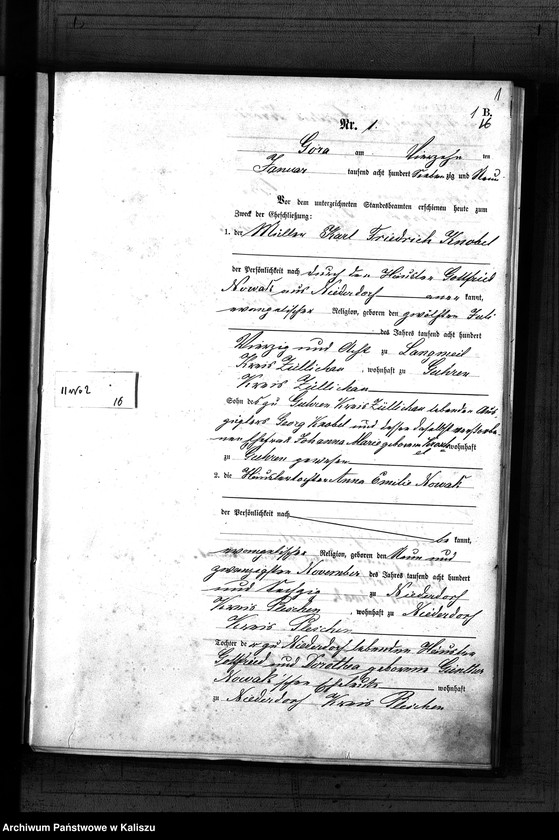 1
1 B.
16
Nr. 1.
Góra am Vierzehn ten
Januar tausend acht hundert siebenzig und Neun
Vor dem unterzeichneten Standesbeamten erschienen heute zum
Zweck der Eheschließung:
1. der Müller Karl Friedrich Knobel
der Persönlichkeit nach durch den Häusler Gottfried
Nowak aus Niederdorf aner kannt,
evangelischer Religion, geboren den zwölften Juli
des Jahres tausend acht hundert
Vierzig und Acht zu Langmeil
Kreis Züllichau, wohnhaft zu Guhren
Kreis Züllichau
Sohn des zu Guhren Kreis Züllichau lebenden Aus-
züglers Georg Knobel und dessen daselbst verstorbe-
nen Ehefrau Johanna Marie geborenen wohnhaft
zu Guhren gewesen
2. die Häuslertochter Anna Emilie Nowak
der Persönlichkeit nach
be kannt,
evangelischer Religion, geboren den Neun und
zwanzigsten November des Jahres tausend acht hundert
und Sechzig zu Niederdorf
Kreis Pleschen, wohnhaft zu Niederdorf
Kreis Pleschen
Tochter der zu Niederdorf lebenden Häusler
Gottfried und Dorothea geborene Günther
Nowak'schen Eheleute wohnhaft
zu Niederdorf Kreis Pleschen
16
Archiwum Państwowe w Kaliszu